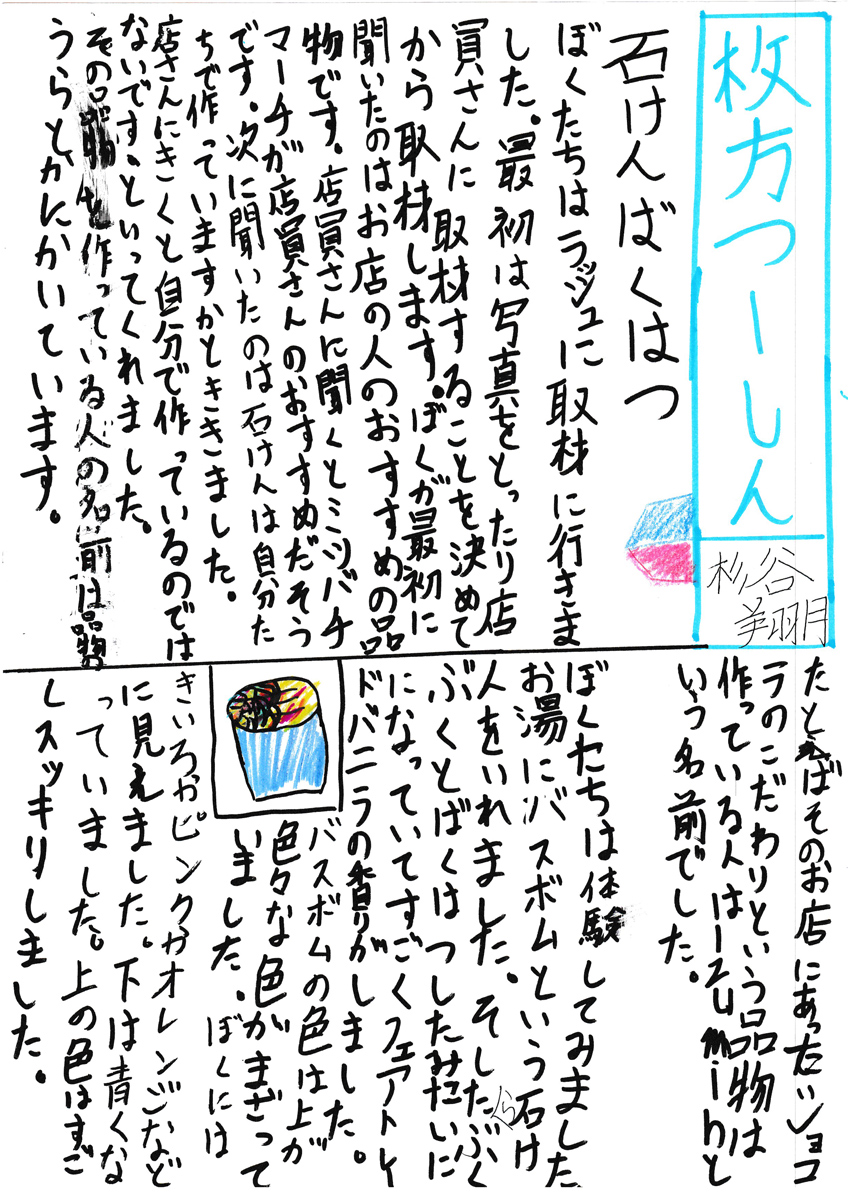 枚方つーしん
杉谷
翔明
石けんばくはつ
ぼくたちはラッシュに取材に行きま
した。最初は写真をとったり店
員さんに取材することを決めて
から取材します。ぼくが最初に
聞いたのはお店の人のおすすめの品
物です。店員さんに聞くとミツバチ
マーチが店員さんのおすすめだそう
です。次に聞いたのは石けんは自分た
ちで作っていますかとききました。
店さんにきくと自分で作っているのでは
ないです。といってくれました。
その品物を作っている人の名前は品物
うらとかにかいています。
たとえばそのお店にあったショコ
ラのこだわりという品物は
作っている人はIZUmihと
いう名前でした。
ぼくたちは体験してみました
お湯にバスボムという石け
人をいれました。そしたらぶく
ぶくとばくはつしたみたいに
になっていてすごくフェアトレ
ドバニラの香りがしました。
バスボムの色は上が
色々な色がまざって
いました。ぼくには
きいろやピンクがオレンジなど
に見えました。下は青くな
っていました。上の色はすご
しスッキリしました。